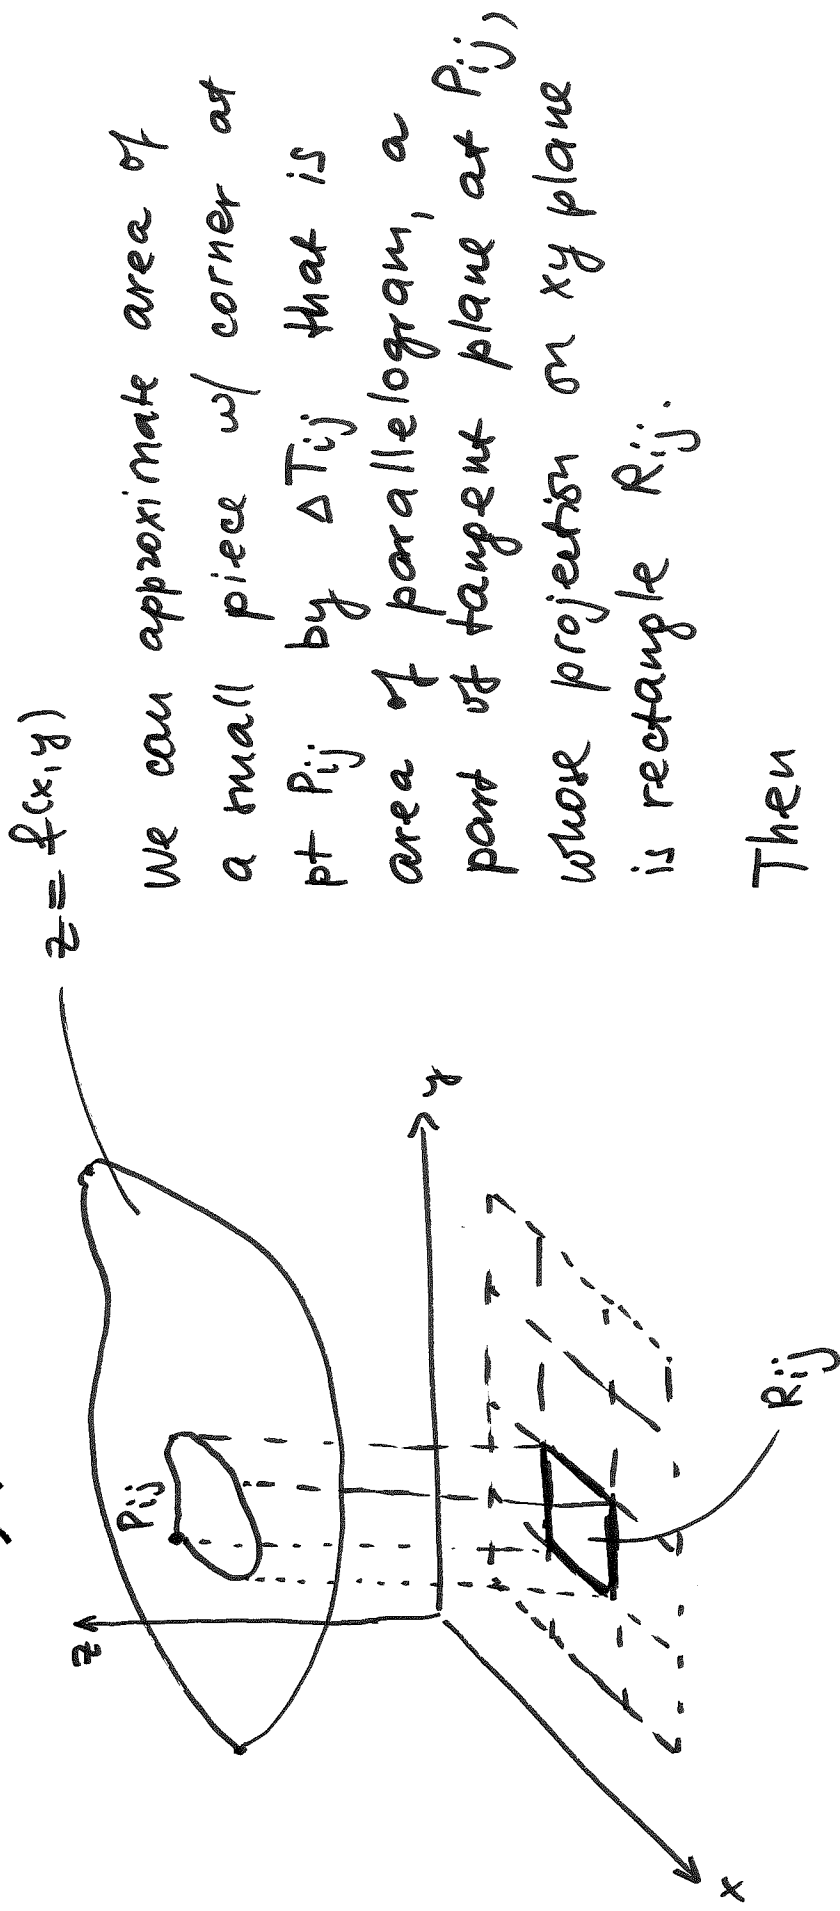 z = f(x,y)
We can approximate area of
a small piece w/ corner at
pt Pij by ΔTij that is
area of parallelogram, a
part of tangent plane at Pij,
whose projection on xy plane
is rectangle Rij.
Then
z
Pij
y
x
Rij